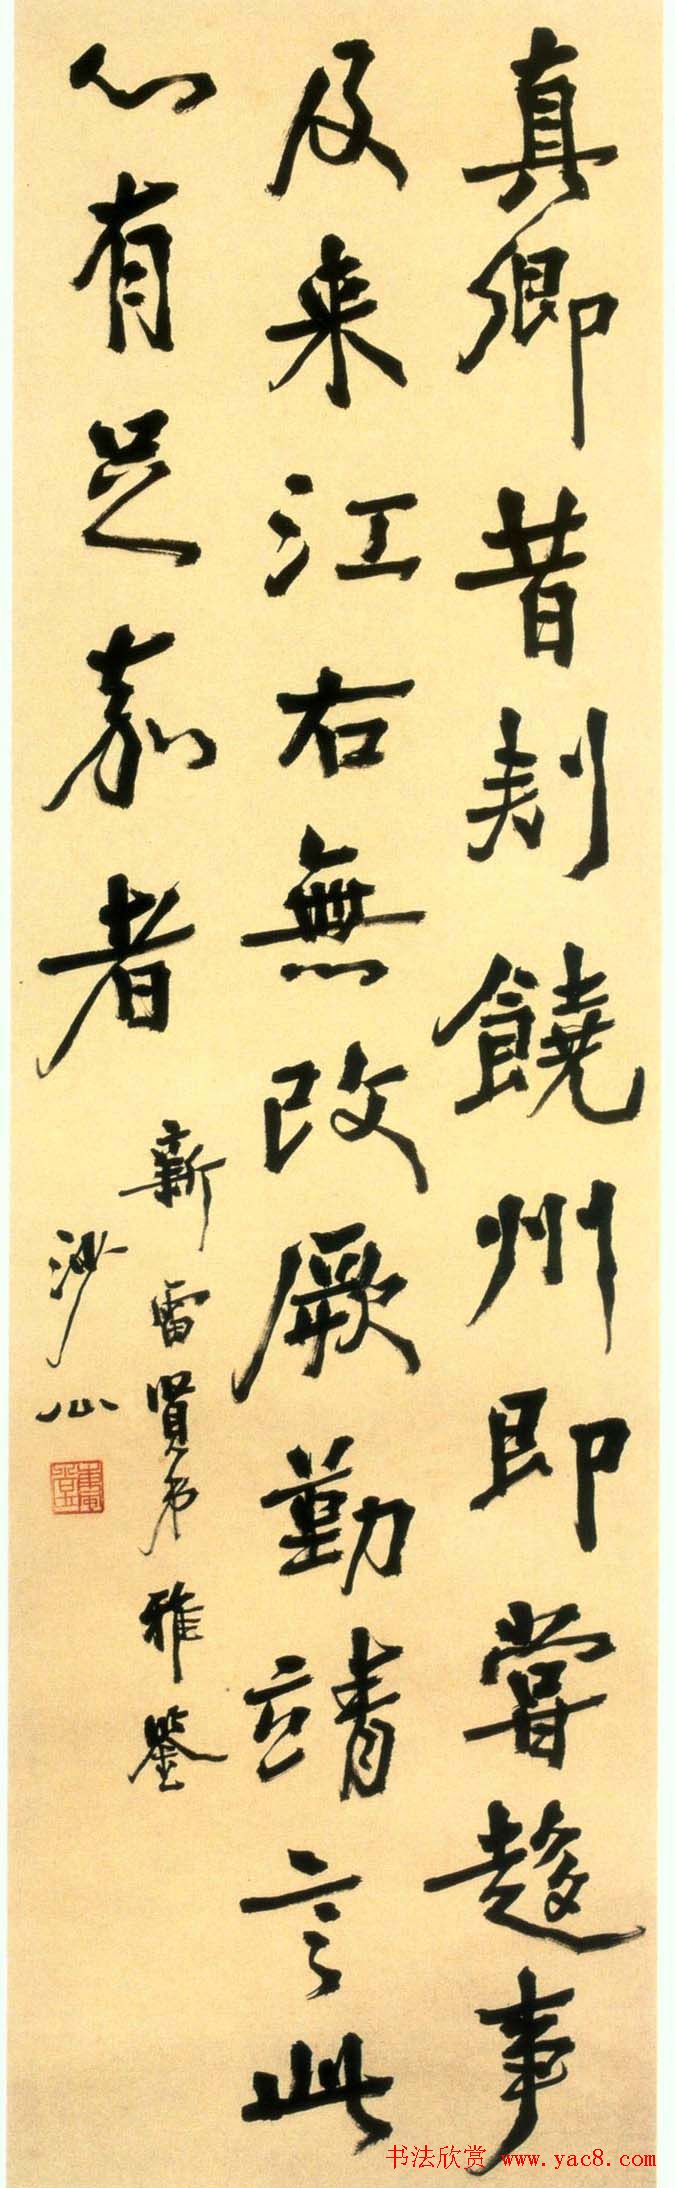 真卿昔刾饒州即嘗趍事
及来江右無改厥勤靖言此
心有足嘉者
新雷賢弟雅鑒
沙山
书法欣赏 www.yac8.com